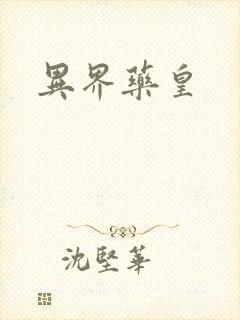 異界藥皇
沈堅華